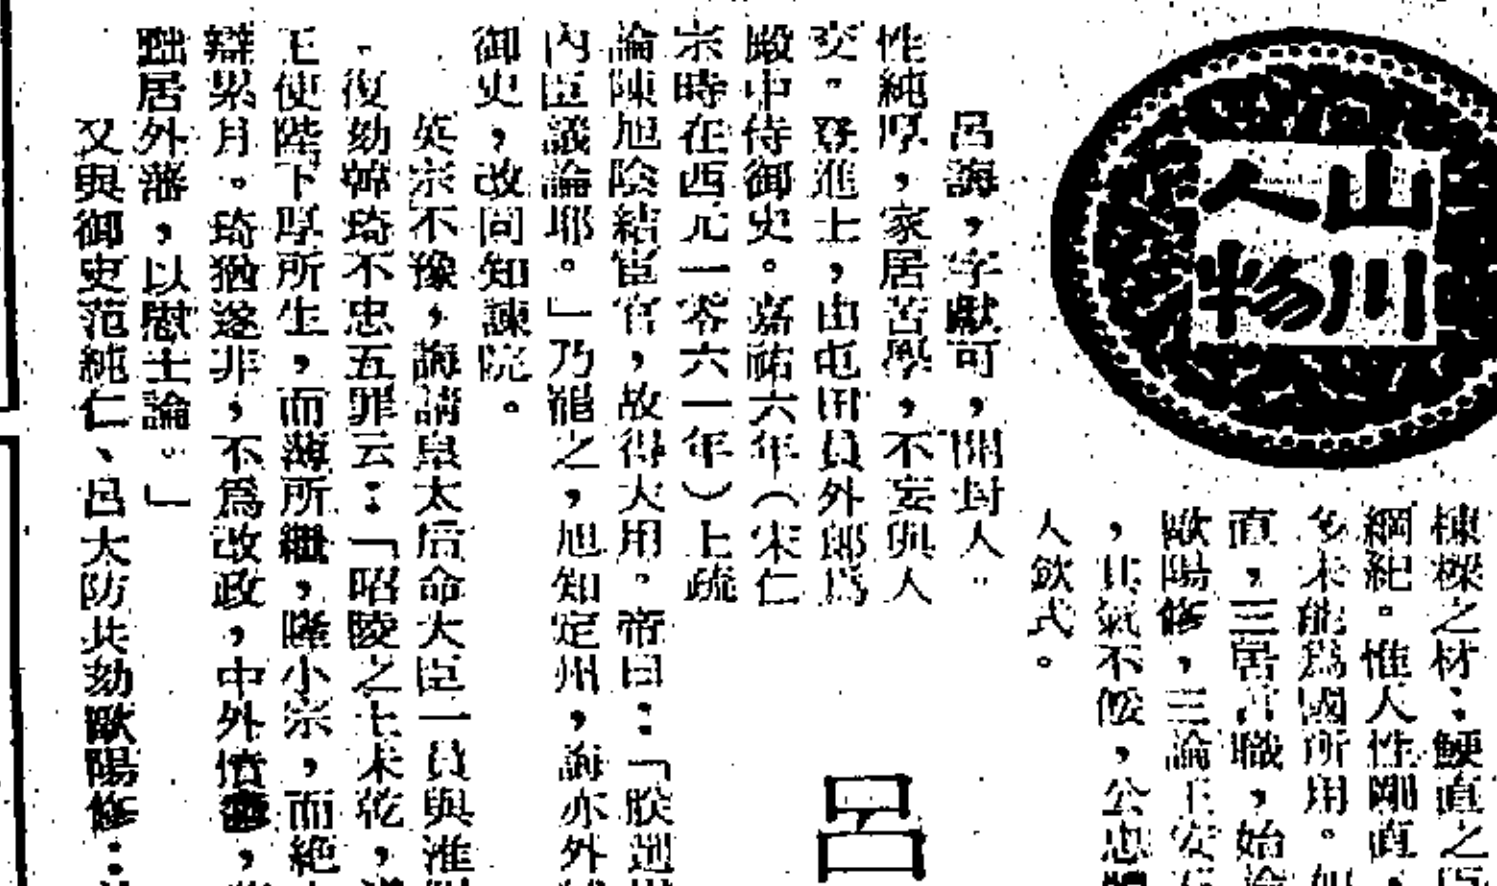 山川
人物
棟樑之材；鯁直之臣
綱紀。惟人性剛直，
多未能爲國所用。如
直，三居言職，始論
歐陽修，三論王安石
，其氣不餒，公忠
人欽式。
呂
呂誨，字獻可，開封人。
性純厚，家居苦學，不妄與人
交。登進士，由屯田員外郎爲
殿中侍御史。嘉祐六年（宋仁
宗時在西元一零六一年）上疏
論陳旭陰結宦官，故得大用。帝曰：「朕選
內臣議論耶。」乃罷之，旭知定州，誨亦外
御史，改同知諫院。
英宗不豫，誨請皇太后命大臣一員與淮陽
。復劾韓琦不忠五罪云：「昭陵之土未乾，
王使陛下厚所生，而薄所繼，隆小宗，而絕
辯累月。琦猶遂非，不爲改政，中外憤鬱，
黜居外藩，以慰士論。」
又與御史范純仁、呂大防共劾歐陽修：